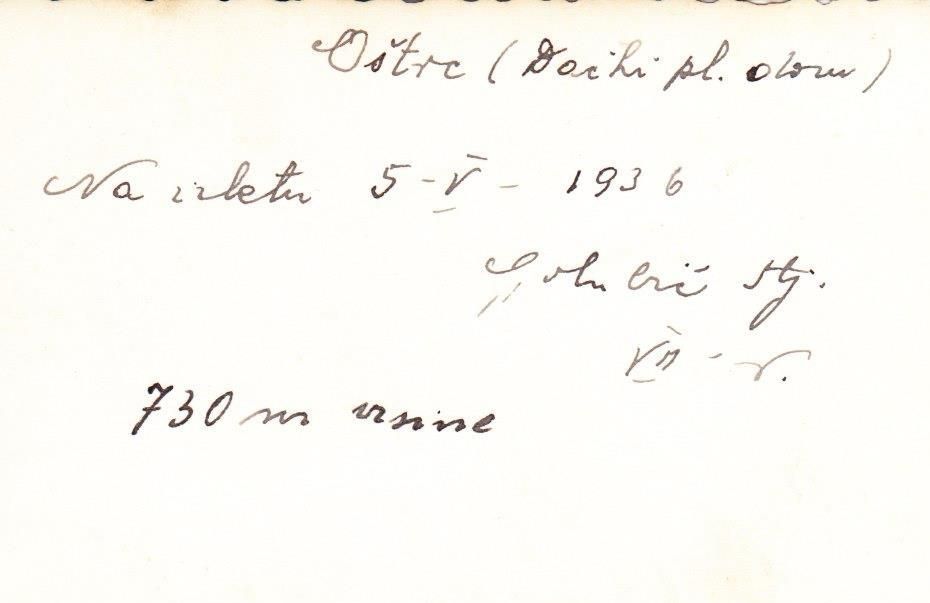 Oštrc (Dački pl. dom)
Na izletu 5-V- 1936
Golubić Stj.
VII - r.
730 m visine